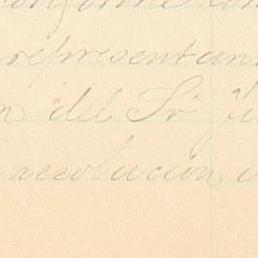 conforme con
representan
n del Sr
resolucion